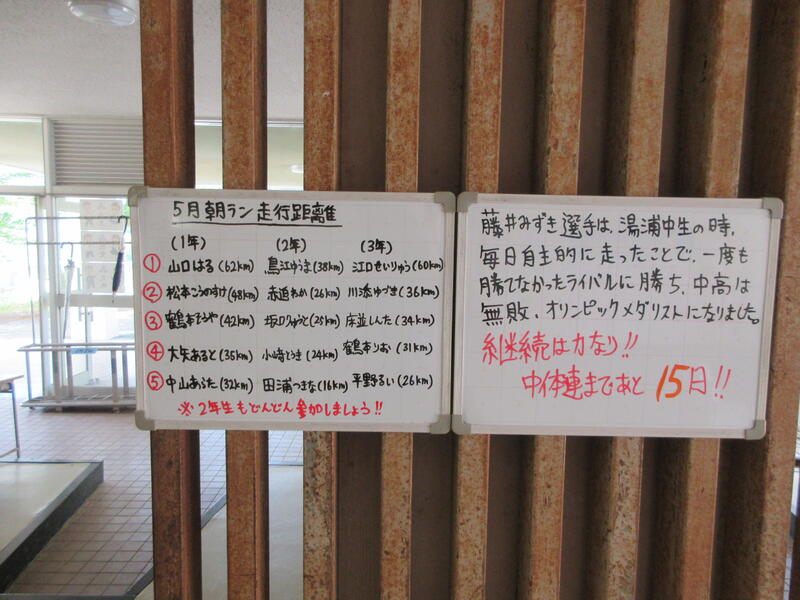 5月朝ラン走行距離
(1年) (2年) (3年)
① 山口はる(62km) 鳥江ゆうま(38km) 江口せいりゅう(60km)
② 松本こうのすけ(48km) 赤迫わか(26km) 川添ゆづき(36km)
③ 鶴本そうや(42km) 坂口りゅうと(25km) 床並しんた(34km)
④ 大矢あると(35km) 小崎とうき(24km) 鶴本りお(31km)
⑤ 中山あらた(32km) 田浦つきな(16km) 平野るい(26km)
※2年生もどんどん参加しましょう!!
藤井みずき選手は、湯浦中生の時、
毎日自主的に走ったことで、一度も
勝てなかったライバルに勝ち、中高は
無敗、オリンピックメダリストになりました。
継続は力なり!!
中体連まであと 15日!!